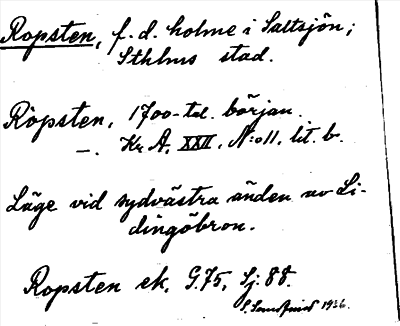 Ropsten, f. d. holme i Saltsjön;
Sthlms stad.
Röpsten, 1700-tal. början.
—. Kr A, XXII, N:o 11, lit. b.
Läge vid sydvästra änden av Li-
dingöbron.
Ropsten ek. G.75, Sj. 88.
1936.